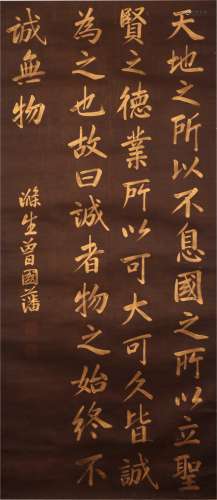 天地之所以不息國之所以立聖
賢之德業所以可大可久皆誠
為之也故曰誠者物之始終不
誠無物
滌生曾國藩